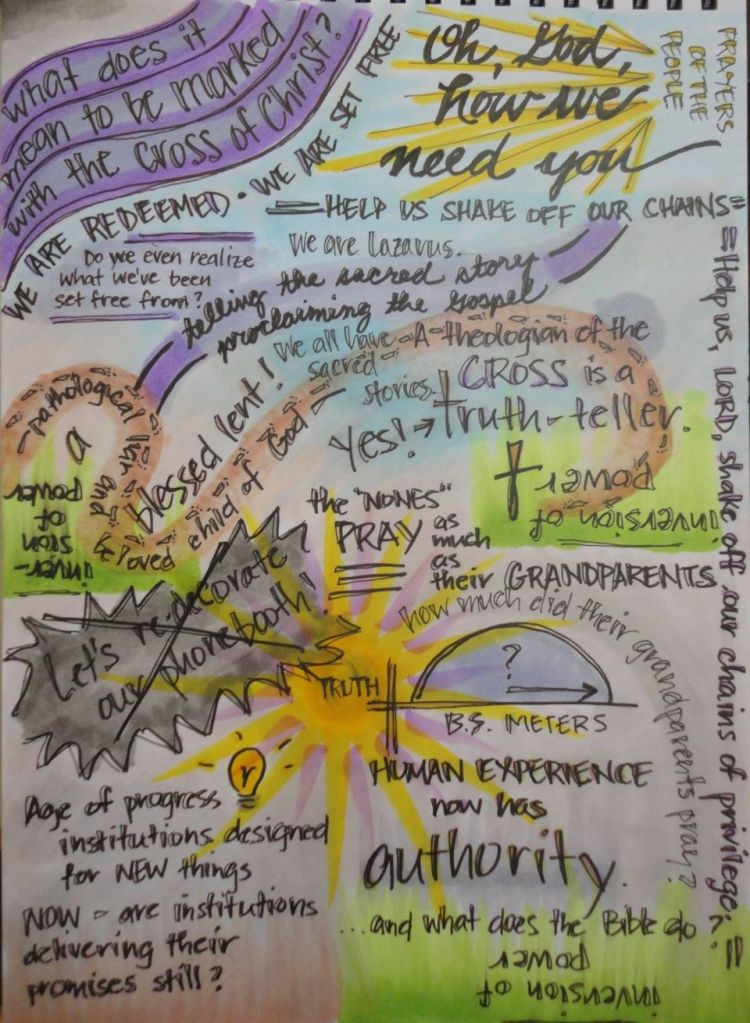 what does it
mean to be marked
with the Cross of Christ?
WE ARE REDEEMED · WE ARE SET FREE
Oh, God,
how we
need you
PRAYERS
OF THE
PEOPLE
HELP US SHAKE OFF OUR CHAINS
Help us, LORD, shake off our chains of privilege.
Do we even realize
what we've been
set free from?
We are Lazarus.
telling the sacred story
proclaiming the Gospel
We all have
sacred
stories.
A theologian of the
CROSS is a
Yes! → truth-teller.
a
pathological liar and
beloved child of God
blessed lent!
inver-
sion
of
power
inversion of
power
the "NONES"
PRAY as
much
as
their GRANDPARENTS
how much did their grandparents pray?
Let's re-decorate
our phonebooth!
TRUTH
?
B.S. METERS
HUMAN EXPERIENCE
now has
authority.
...and what does the Bible do?
inversion of
power
Age of progress
institutions designed
for NEW things
NOW - are institutions
delivering their
promises still?